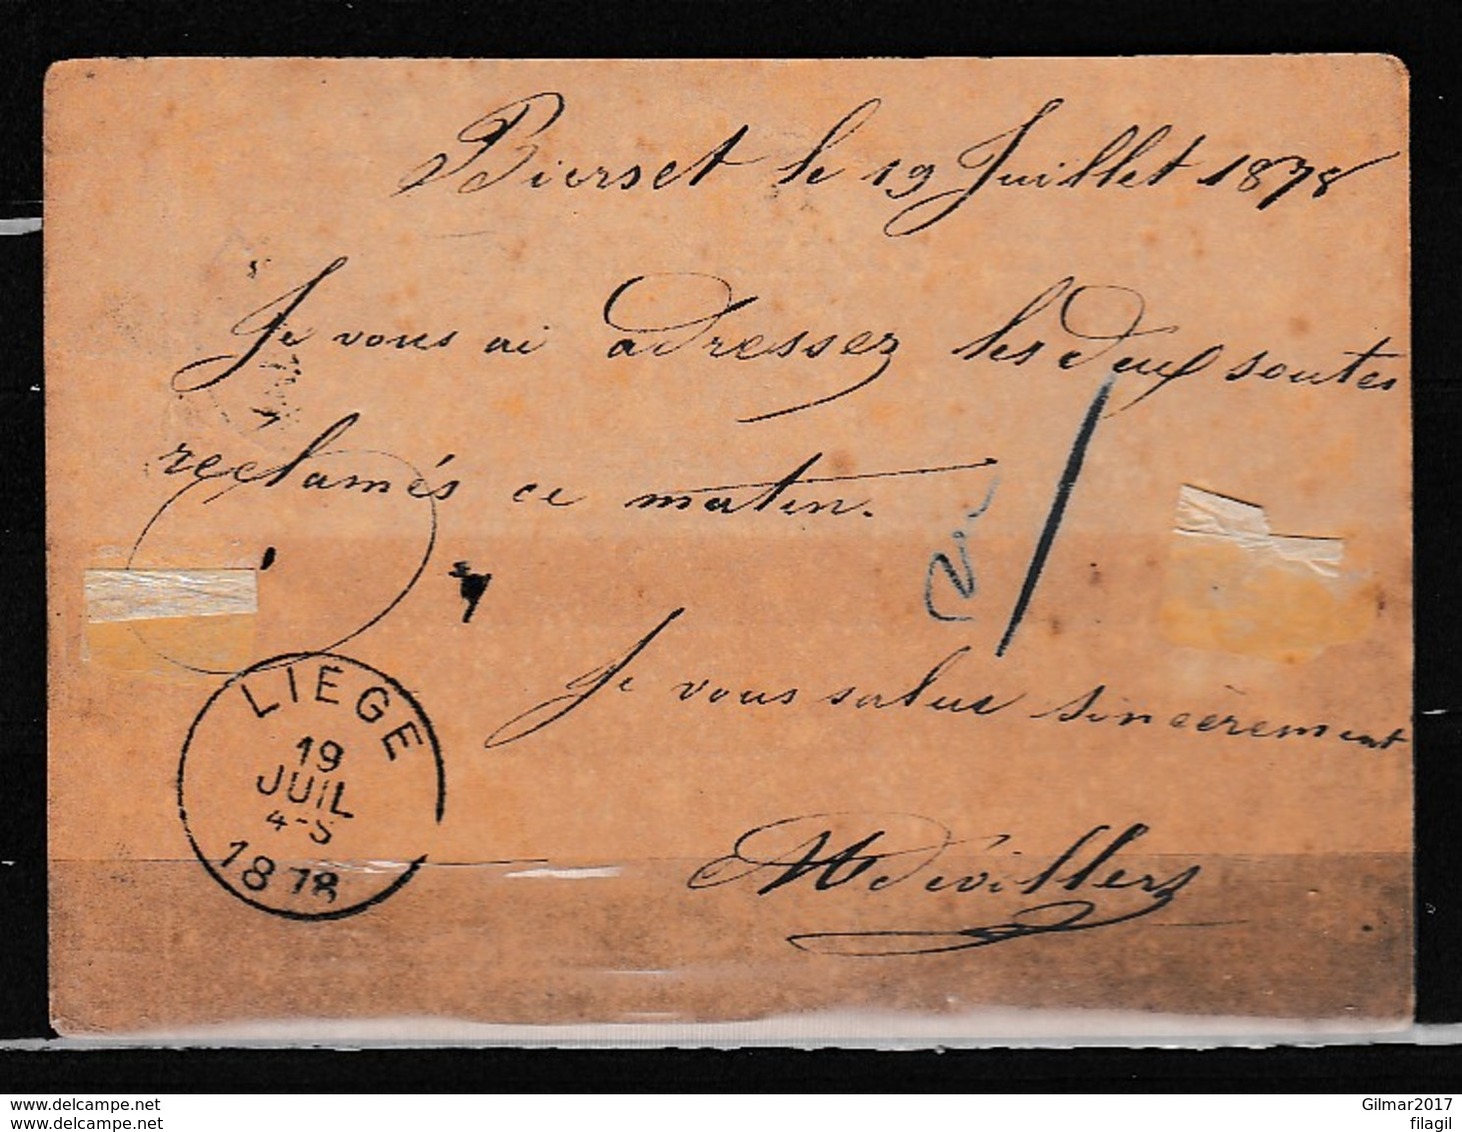 Bierset le 19 Juillet 1878
Je vous ai adressez les deux soutes
reclamés ce matin.
Je vous salue sincèrement
Mdevillers
LIEGE
19
JUIL
4-5
1878
delcampe.net
delcampe.net
Gilmar2017
filagil